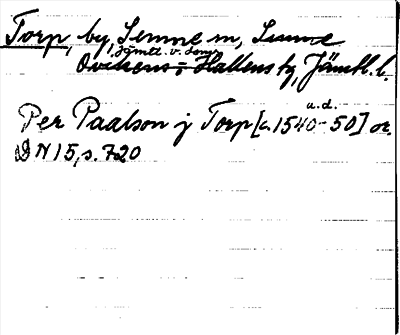 Torp, by, Sunne sn, Sunne
Jämtl. v. doms.
Ovikens o Hallens tg, Jämtl. l.
a.d.
Per Paalson j Torp [c. 1540-50] or.
DN 15, s. 720